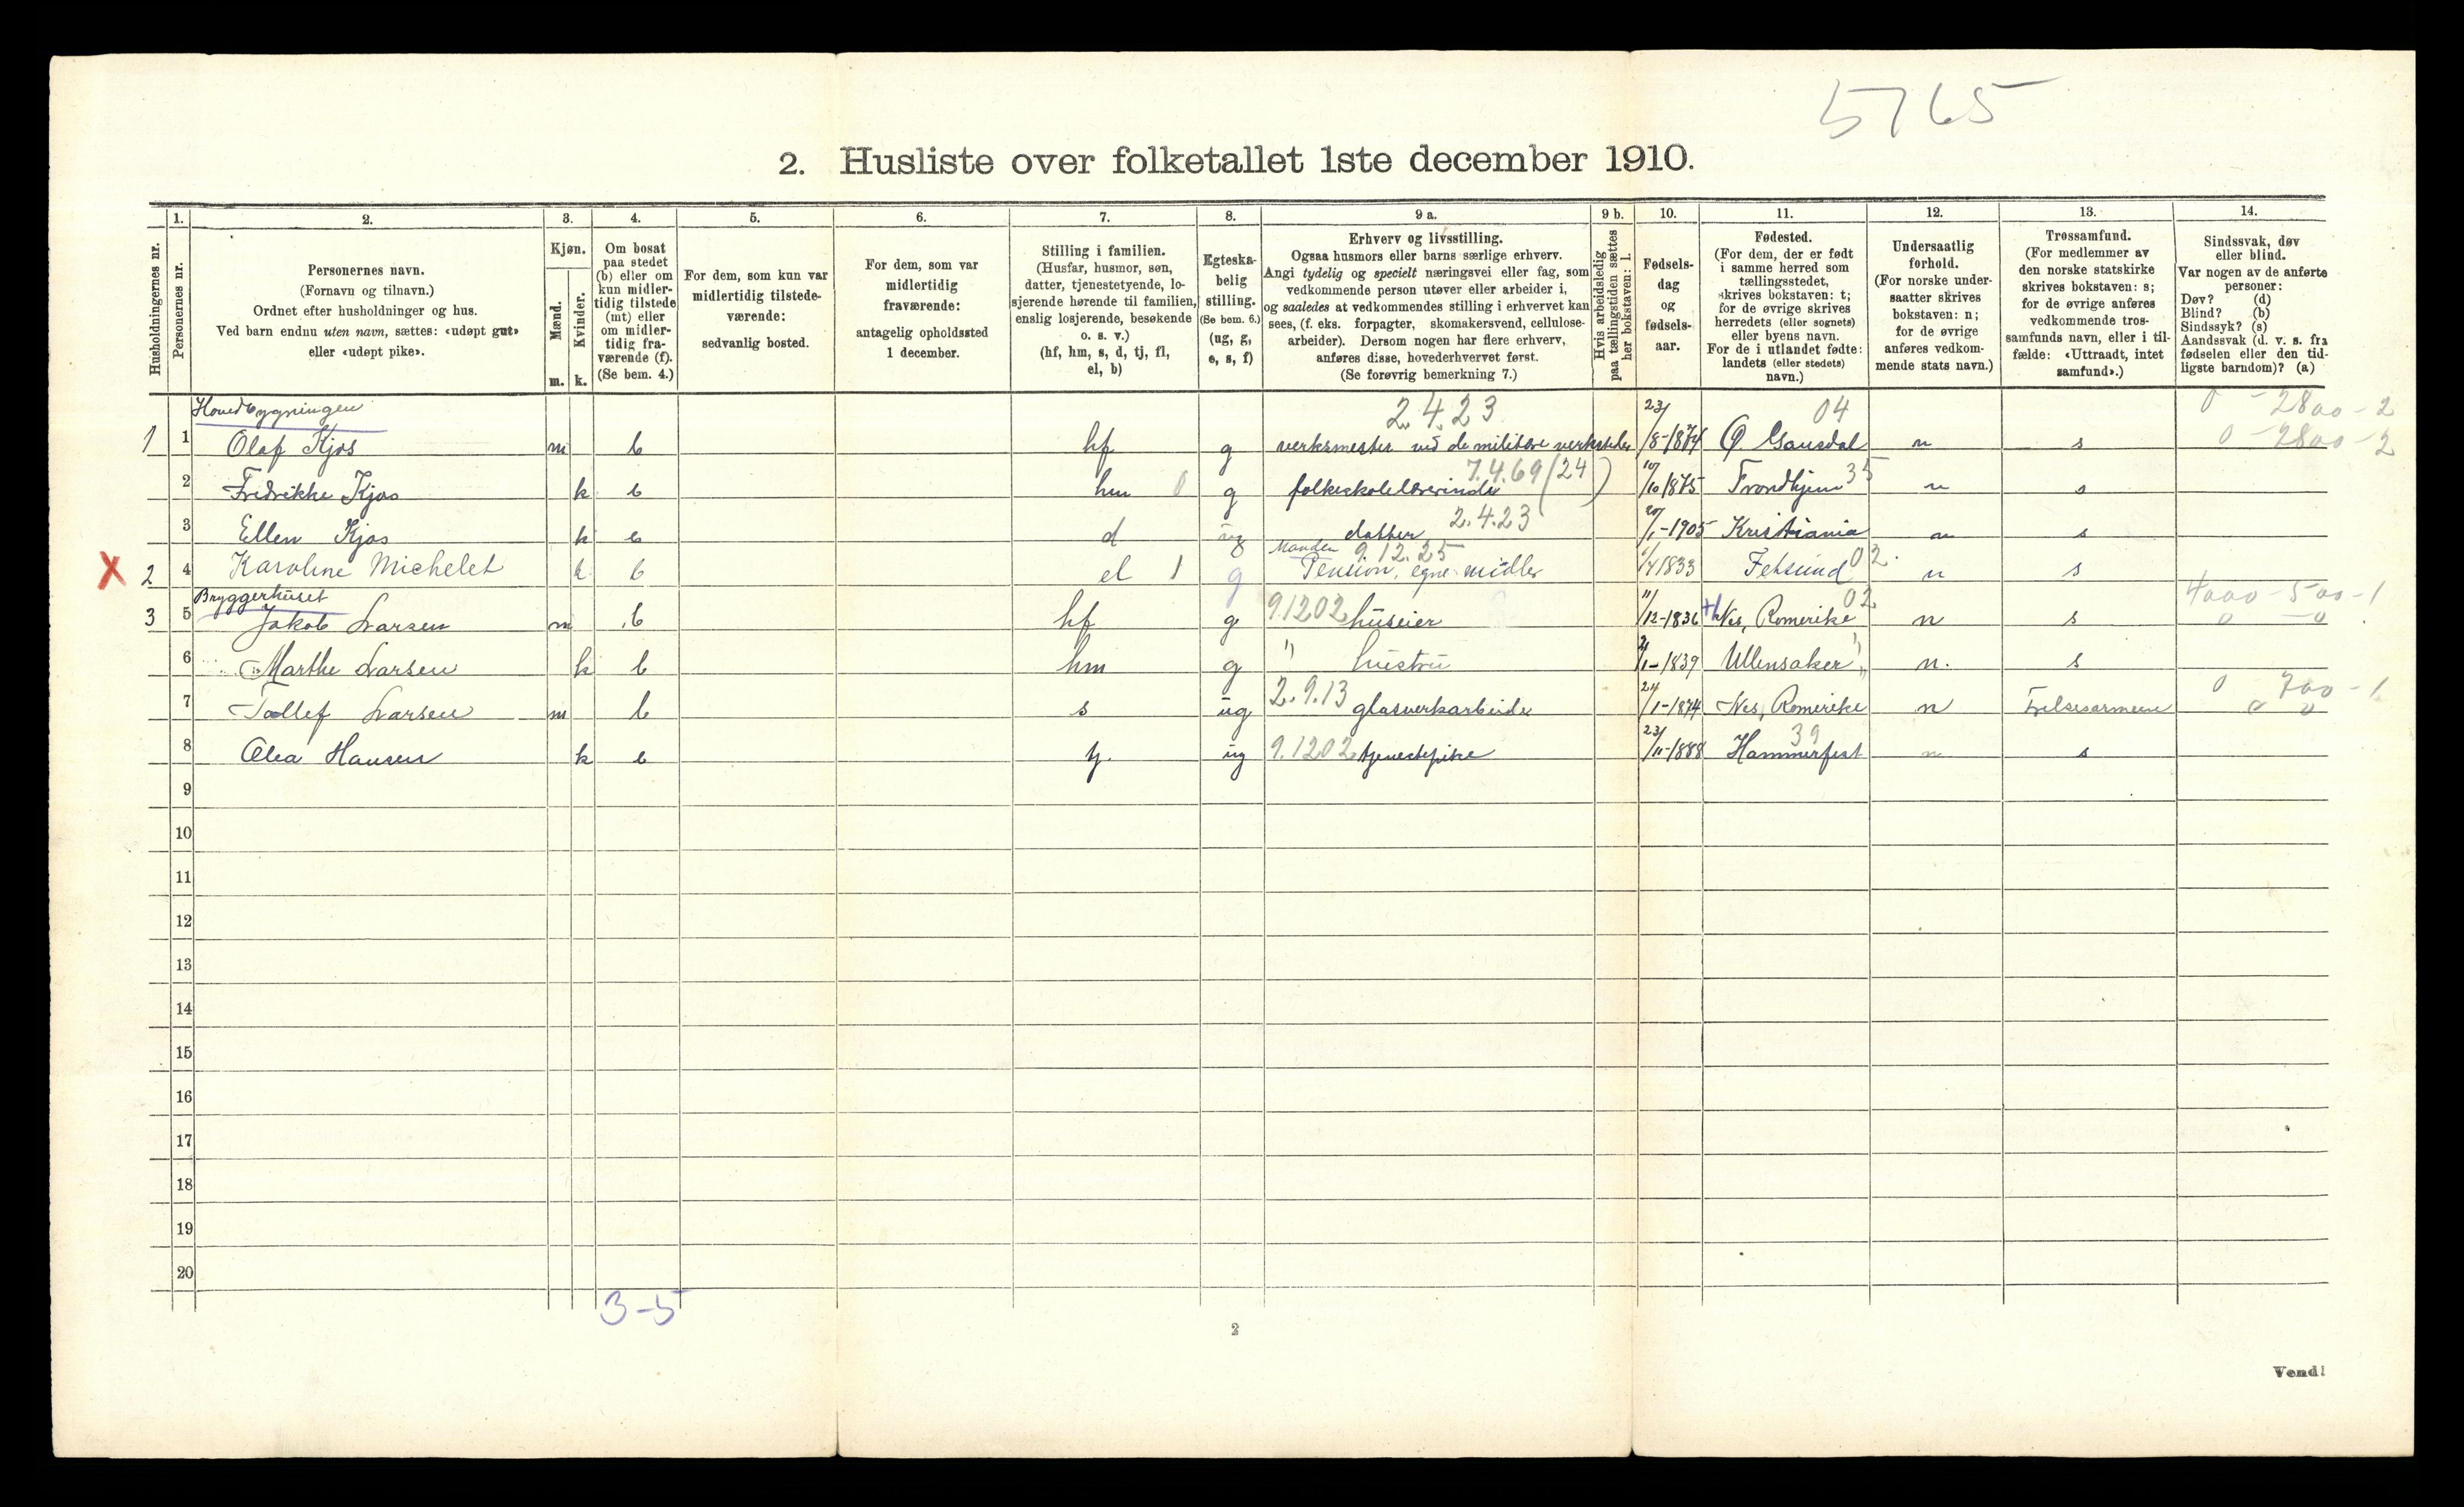 5765
2. Husliste over folketallet 1ste december 1910.
Husholdningernes nr.
1.
Personernes nr.
2.
Personernes navn.
(Fornavn og tilnavn.)
Ordnet efter husholdninger og hus.
Ved barn endnu uten navn, sættes: «udøpt gut»
eller «udøpt pike».
3.
Kjøn.
Mænd.
Kvinder.
m. k.
4.
Om bosat
paa stedet
(b) eller om
kun midler-
tidig tilstede
(mt) eller
om midler-
tidig fra-
værende (f).
(Se bem. 4.)
5.
For dem, som kun var
midlertidig tilstede-
værende:
sedvanlig bosted.
6.
For dem, som var
midlertidig
fraværende:
antagelig opholdssted
1 december.
7.
Stilling i familien.
(Husfar, husmor, søn,
datter, tjenestetyende, lo-
sjerende hørende til familien,
enslig losjerende, besøkende
o. s. v.)
(hf, hm, s, d, tj, fl,
el, b)
8.
Egteska-
belig
stilling.
(Se bem. 6.)
(ug, g,
e, s, f)
9 a.
Erhverv og livsstilling.
Ogsaa husmors eller barns særlige erhverv.
Angi tydelig og specielt næringsvei eller fag, som
vedkommende person utøver eller arbeider i,
og saaledes at vedkommendes stilling i erhvervet kan
sees, (f. eks. forpagter, skomakersvend, cellulose-
arbeider). Dersom nogen har flere erhverv,
anføres disse, hovederhvervet først.
(Se forøvrig bemerkning 7.)
9 b.
Hvis arbeidsledig
paa tællingstiden sættes
her bokstaven: l.
10.
Fødsels-
dag
og
fødsels-
aar.
11.
Fødested.
(For dem, der er født
i samme herred som
tællingsstedet,
skrives bokstaven: t;
for de øvrige skrives
herredets (eller sognets)
eller byens navn.
For de i utlandet fødte:
landets (eller stedets)
navn.)
12.
Undersaatlig
forhold.
(For norske under-
saatter skrives
bokstaven: n;
for de øvrige
anføres vedkom-
mende stats navn.)
13.
Trossamfund.
(For medlemmer av
den norske statskirke
skrives bokstaven: s;
for de øvrige anføres
vedkommende tros-
samfunds navn, eller i til-
fælde: «Uttraadt, intet
samfund».)
14.
Sindssvak, døv
eller blind.
Var nogen av de anførte
personer:
Døv? (d)
Blind? (b)
Sindssyk? (s)
Aandssvak (d. v. s. fra
fødselen eller den tid-
ligste barndom)? (a)
Hovedbygningen 2.4.23 04 0 - 2800 - 2
1 1 Olaf Kjos m b hf g verksmester ved de militære verksteder 23/8-1874 Ø. Gausdal n s 0 - 2800 - 2
7.4.69 (24) 35
2 Fredrikke Kjos k b hm 0 g folkeskolelærerinde 10/10 1875 Trondhjem n s
2.4.23
3 Ellen Kjos k b d ug datter 20/1-1905 Kristiania n s
Manden 9.12.25 02
X 2 4 Karoline Michelet k b el 1 g Pension, egne midler 1/4 1833 Fetsund n s
Bryggerhuset 02 4000 - 500 - 1
3 5 Jakob Larsen m b hf g 9.1202 huseier 11/12-1836 Nes, Romerike n s 0 - 0
6 Marthe Larsen k b hm g " hustru 21/1-1839 Ullensaker " n. s
2.9.13 0 700 - 1
7 Tollef Larsen m b s ug glasverkarbeider 24/1-1874 Nes, Romerike n Frelsesarmeen 0 0
39
8 Olea Hansen k b tj. ug 9.1202 tjenestepike 23/11-1888 Hammerfest n s
9
10
11
12
13
14
15
16
17
18
19
20
3-5
2
Vend!